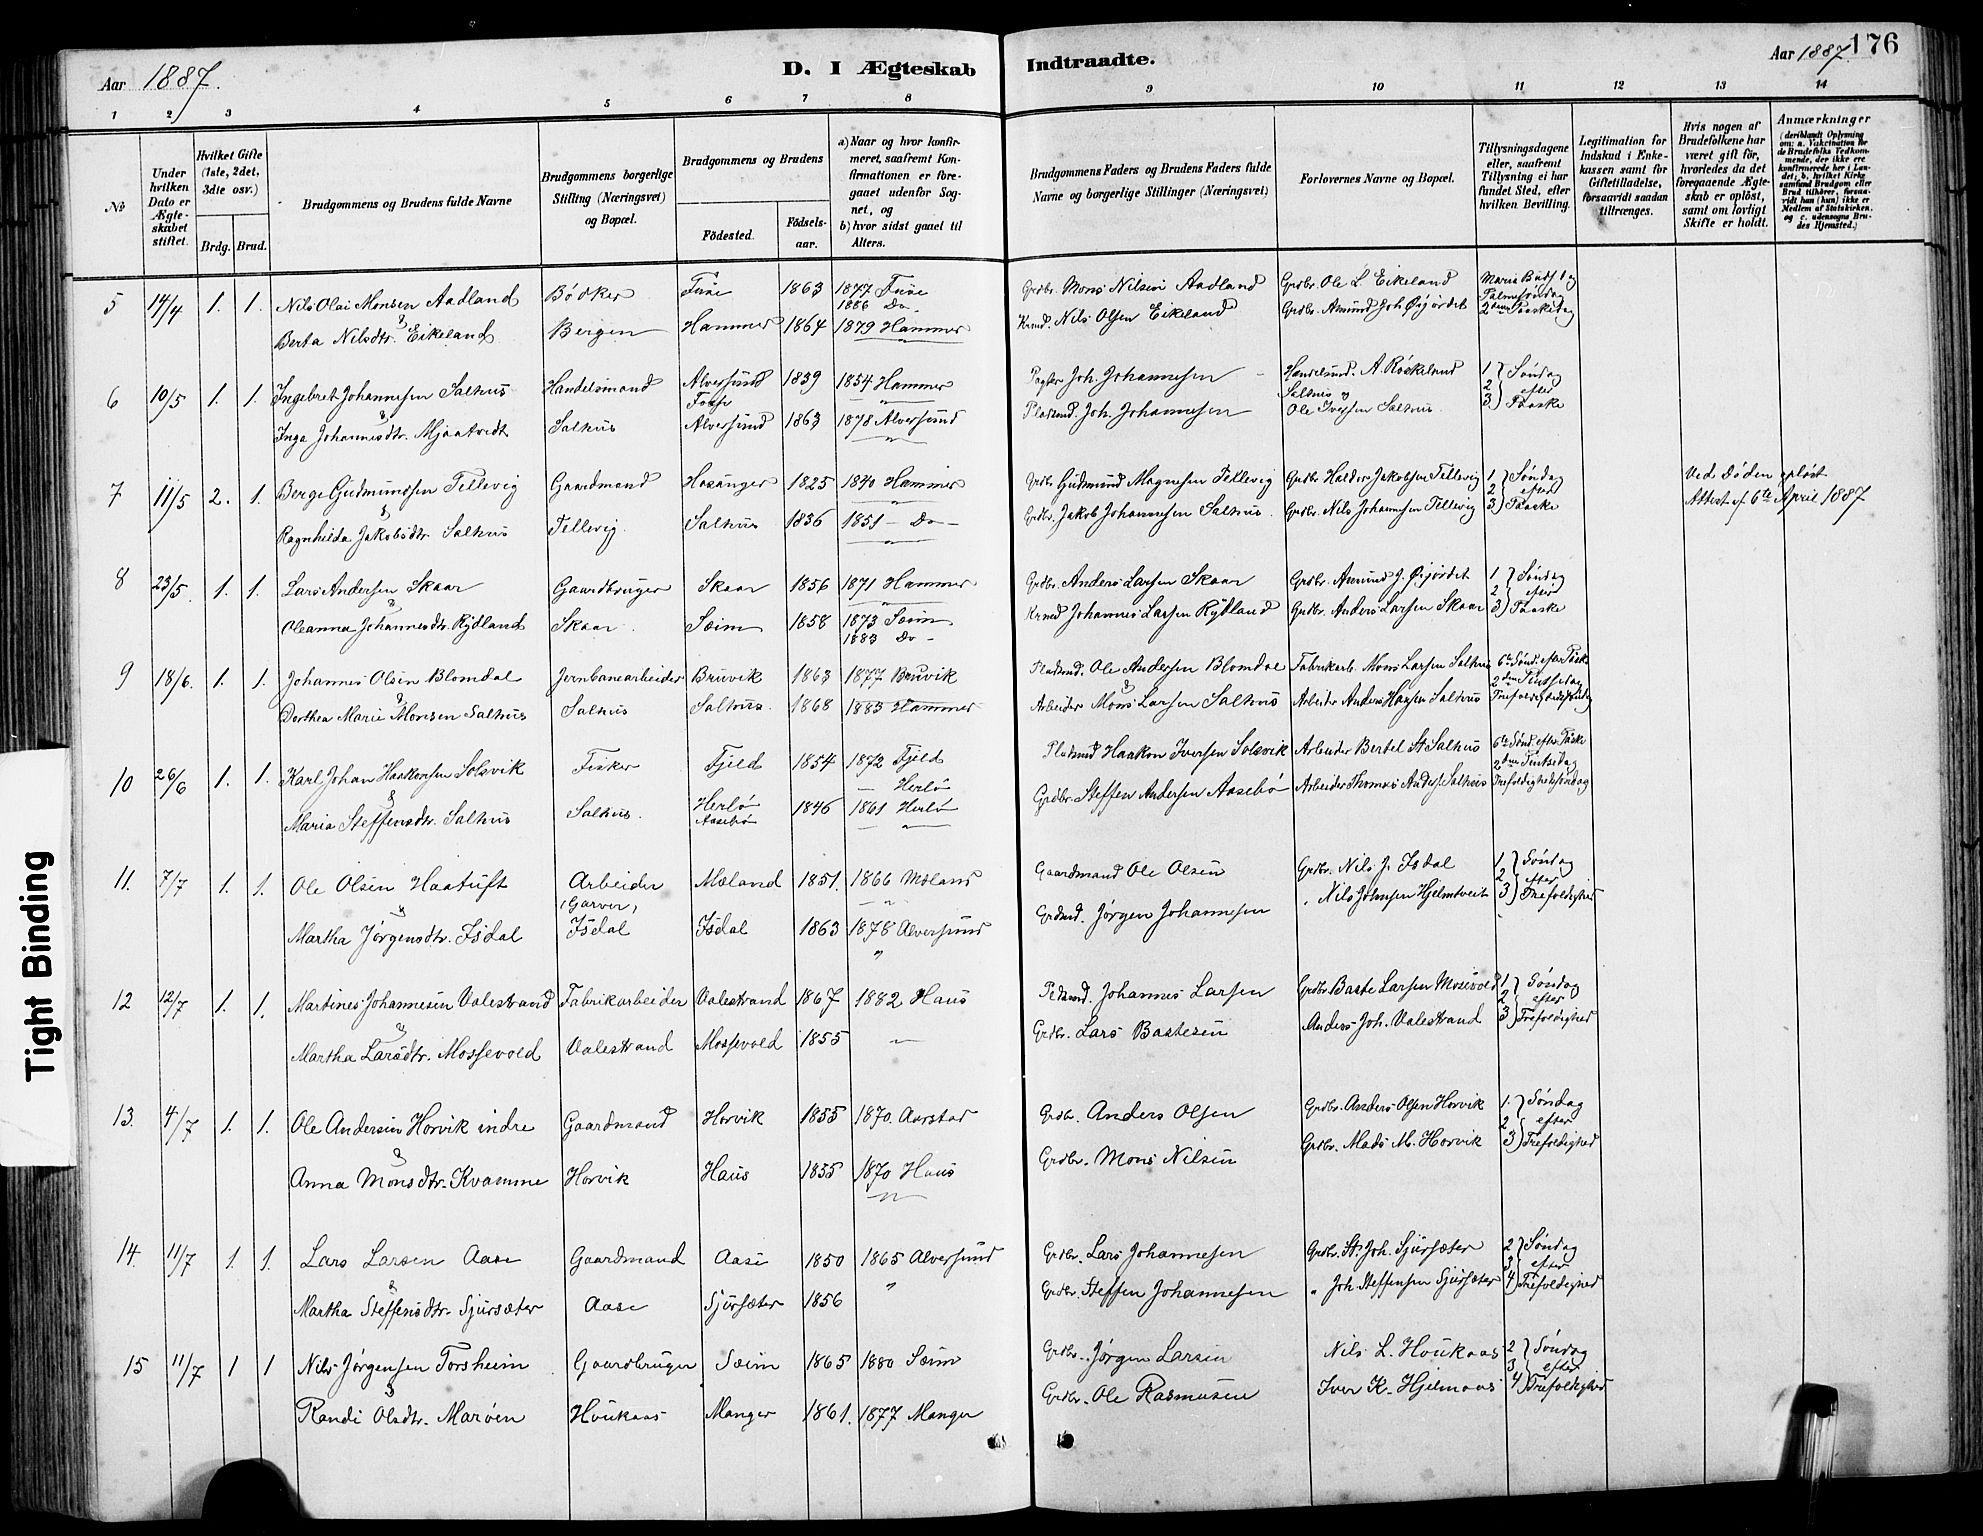 Aar 1887.
D. I Ægteskab Indtraadte.
Aar 1887. 176
1 2 3 4 5 6 7 8 9 10 11 12 13 14
№
Under hvilken Dato er Ægteskabet stiftet.
Hvilket Gifte (1ste, 2det, 3die osv.)
Brdg. Brud.
Brudgommens og Brudens fulde Navne
Brudgommens borgerlige Stilling (Næringsvei) og Bopæl.
Brudgommens og Brudens
Fødested. Fødselsaar.
a) Naar og hvor konfirmeret, saafremt Konfirmationen er foregaaet udenfor Sognet, og
b) hvor sidst gaaet til Alters.
Brudgommens Faders og Brudens Faders fulde Navne og borgerlige Stillinger (Næringsvei)
Forlovernes Navne og Bopæl.
Tillysningsdagene eller, saafremt Tillysning ei har fundet Sted, efter hvilken Bevilling.
Legitimation for Indskud i Enkekassen samt for Giftetilladelse, forsaavidt saadan tiltrænges.
Hvis nogen af Brudefolkene har været gift før, hvorledes da det foregaaende Ægteskab er opløst, samt om lovligt Skifte er holdt.
Anmærkninger (deriblandt Oplysning om: a. Vakcination for de Brudefolks Vedkommende, der ikke ere konfirmerede her i Landet; b. hvilket Kirkesamfund Brudgom eller Brud tilhører, forsaavidt han (hun) ikke er Medlem af Statskirken, og c. udensogns Brudes Hjemsted.)
5 14/4 1. 1. Nils Olai Monsen Aadland Bödker Fuse 1863 1877 Fuse Grdbr. Mons Nilsen Aadland Grdbr. Ole L. Eikeland Maria Buds. og
& 1886 Do. Palmesöndag
Berta Nilsdtr. Eikeland Bergen Hammer 1864 1879 Hammer Krmd. Nils Olsen Eikeland Grdbr. Amund Joh. Öyjordet 2den Paaskedag
6 10/5 1. 1. Ingebret Johannesen Salhus Handelsmand Alversund 1839 1854 Hammer Joh. Johannesen Handelsmd. A. Röskeland 1 Søndag
& Salhus og 2 efter
Inga Johannesdtr. Mjaatvedt Salhus Alversund 1863 1878 Alversund Pladsmd. Joh. Johannesen Ole Iversen Salhus 3 Paaske
7 11/5 2. 1. Berge Gudmundsen Tellevig Gaardmand Hosanger 1825 1840 Hammer Grdbr. Gudmund Magnesen Tellevig Grdbr. Haldor Jakobsen Tellevig 1 Søndag Ved Døden opløst
& 2 efter Attest af 6te April 1887
Ragnhilda Jakobsdtr. Salhus Tellevig. Salhus 1836 1851 – Do – Grdbr. Jakob Johannesen Salhus. Grdbr. Nils Johannesen Tellevig 3 Paaske
8 23/5. 1. 1. Lars Andersen Skaar Gaardbruger Skaar 1856 1871 Hammer Grdbr. Anders Larsen Skaar Grdbr. Amund J. Öyjordet 1. Søndag
& 2 efter
Oleanna Johannesdtr. Rydland Skaar. Sæim 1858 1873 Sæim Krmd Johannes Larsen Rydland Grdbr. Anders Larsen Skaar 3 Paaske
1883 Do –
9 18/6. 1. 1. Johannes Olsen Blomdal Jernbanearbeider Bruvik 1863 1877 Bruvik Pladsmd. Ole Andersen Blomdal Fabrikarb. Mons Larsen Salhus 6te Sønd. efter Paaske
& 2den Pintsedag
Dorthea Marie Monsen Salhus Salhus Salhus. 1868 1883 Hammer Arbeider Mons Larsen Salhus Arbeider Anders Salhus Trefoldighedssöndag
10 26/6 1. 1. Karl Johan Haakonsen Solsvik Fisker Fjeld 1854 1872 Fjeld Pladsmd Haakon Iversen Solsvik Arbeider Bertel St. Salhus 6te Sønd. efter Paaske
& Herlø 2den Pintsedag
Maria Steffensdtr. Salhus Salhus. Herlø Aasebø 1846 1861 Herlø Grdbr. Steffen Andersen Aasebø Arbeider Thomas Anders. Salhus Trefoldighedssöndag
11. 7/7 1. 1. Ole Olsen Haatuft Arbeider Mæland 1851. 1866 Mæland Gaardmand Ole Olsen Grdbr. Nils J. Isdal 1. Søndag
& (Garver) 2 efter
Martha Jørgensdtr. Isdal Isdal Isdal 1863 1878 Alversund Grdmd. Jørgen Johannesen " Nils Johnsen Hjelmtveit 3) Trefoldighed
12 12/7 1. 1. Martines Johannesen Valestrand Fabrikarbeider Valestrand 1867 1882 Haus Pldsmd. Johannes Larsen Grdbr. Baste Larsen Mosevold 1. Søndag
& 2 efter
Martha Larsdtr. Mossevold Valestrand Mossevold 1855 " Grdbr. Lars Bastesen Anders Joh. Valestrand 3) Trefoldighed
13. 4/7 1. 1. Ole Andersen Horvik indre Gaardmand Horvik 1855 1870. Aarstad Grdbr. Anders Olsen Grdbr. Anders Olsen Horvik 1. Søndag
& 2 efter
Anna Monsdtr. Kvamme Horvik Haus 1855 1870 Haus Grdbr. Mons Nilsen Grdbr. Mads M. Horvik 3) Trefoldighed
14. 11/7 1. 1. Lars Larsen Aase Gaardmand Aase 1850 1865 Alversund Grdbr. Lars Johannesen Grdbr. St. Joh. Sjursæter 2 Søndag
& 3 efter
Martha Steffensdtr. Sjursæter Aase Sjursæter 1856 " Grdbr. Steffen Johannesen " Joh. Steffensen Sjursæter 4) Trefoldighed
15 11/7 1 1 Nils Jørgensen Torsheim Gaardbruger Sæim 1865 1880 Sæim Grdbr. Jørgen Larsen Nils L. Houkaas 2 Søndag
& 3 efter
Randi Olsdtr. Marøen Houkaas Manger 1861. 1877 Manger Grdbr. Ole Rasmusen Iver K. Hjelmaas 4) Trefoldighed
Tight Binding